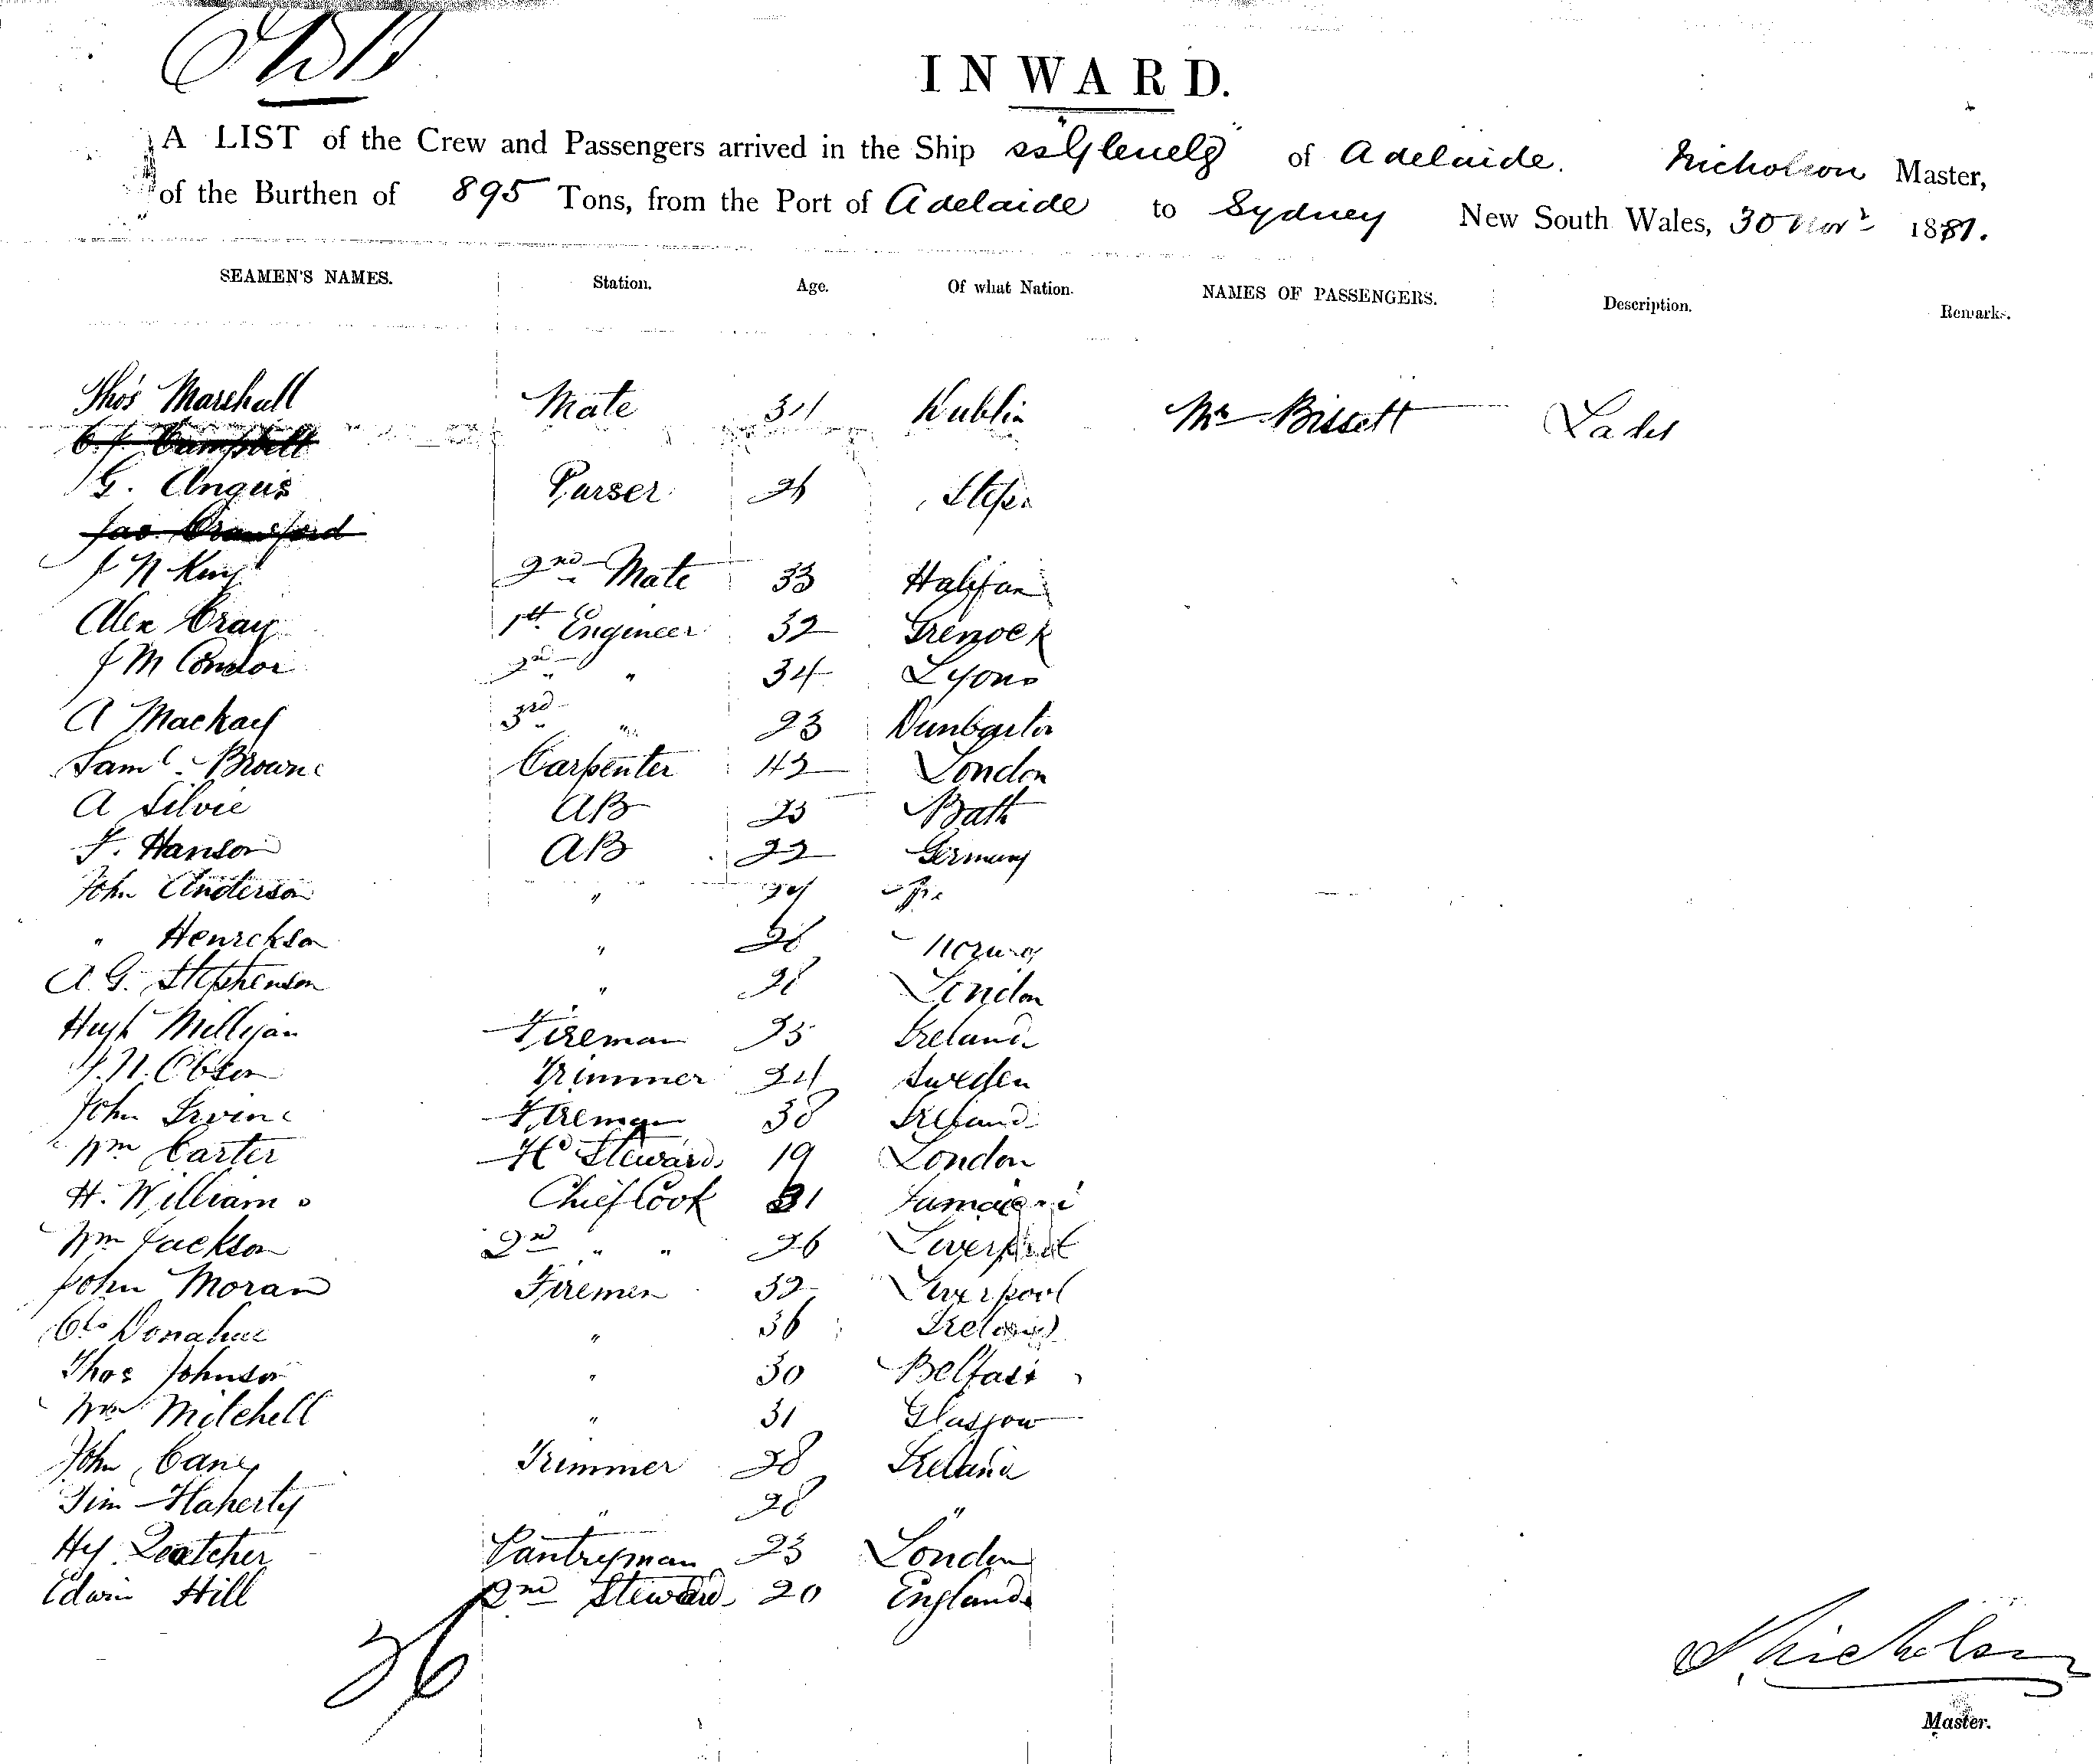 INWARD.
A LIST of the Crew and Passengers arrived in the Ship ss "Glenelg" of Adelaide. Nicholson Master,
of the Burthen of 895 Tons, from the Port of Adelaide to Sydney New South Wales, 30 Novr 1881.
SEAMEN'S NAMES. Station. Age. Of what Nation. NAMES OF PASSENGERS. Description. Remarks.
Thos Marshall Mate 34 Dublin Mrs Bissett Lades
C. J. Campbell
G. Angus Purser 26
Jas. Crawford
J N King 2nd Mate 33 Halifax
Alex Cray 1st Engineer 32 Grenock
J M Condor 2nd " " 34 Lyons
A Mackay 3rd " " 23 Dunbarton
Saml. Browne Carpenter 42 London
A Silvie AB 23 Bath
F. Hanson AB 22 Germany
John Anderson " 24
" Henrckson " 26 Norway
A. G. Stephenson " 28 London
Hugh Milligan Fireman 35 Ireland
Trimmer 24 Sweden
John Irvine Fireman 38 Ireland
Wm Carter Steward 19 London
H. Williams Chief Cook 31 Jamaica
Wm Jackson 2nd " " 26 Liverpool
John Moran Firemen 32 Liverpool
Donahue " 36 Ireland
Thos Johnson " 30 Belfast
Wm Mitchell " 31 Glasgow
John Cane Trimmer 28 Ireland
Tim Flaherty " 28 "
Hy. Pantryman 23 London
Edwin Hill 2nd Steward 20 England
36
Nicholson
Master.